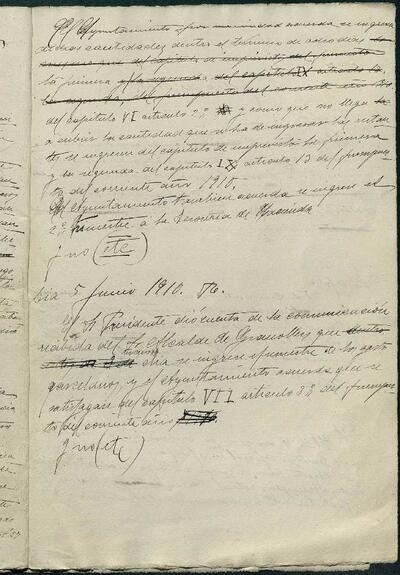 El Ayuntamiento por unanimidad acuerda se ingresen
dichas cantidades dentro el termino de ocho dias
del capitulo de imprevistos del presente
la primera y la segunda del capitulo IX articulo
la segunda, del presupuesto del corriente año
del capitulo VI articulo 2º y como que no llega
a cubrir la cantidad que se ha de ingresar las restan
tes se ingresen del capitulo de imprevistos la primera
y la segunda del capitulo IX articulo 13 del presupues
to del corriente año 1910.
El Ayuntamiento tambien acuerda se ingrese el
2º trimestre a la Tesoreria de Hacienda
y no (etc)
Dia 5 Junio 1910.
El Sr Presidente dió cuenta de la comunicación
recibida del Sr Alcalde de Granollers que dentro
dia se ingrese el trimestre de los gastos
carcelarios, y el Ayuntamiento acuerda que se
satisfagan del capitulo VII articulo 3º del presupues
to del corriente año
y no (etc)